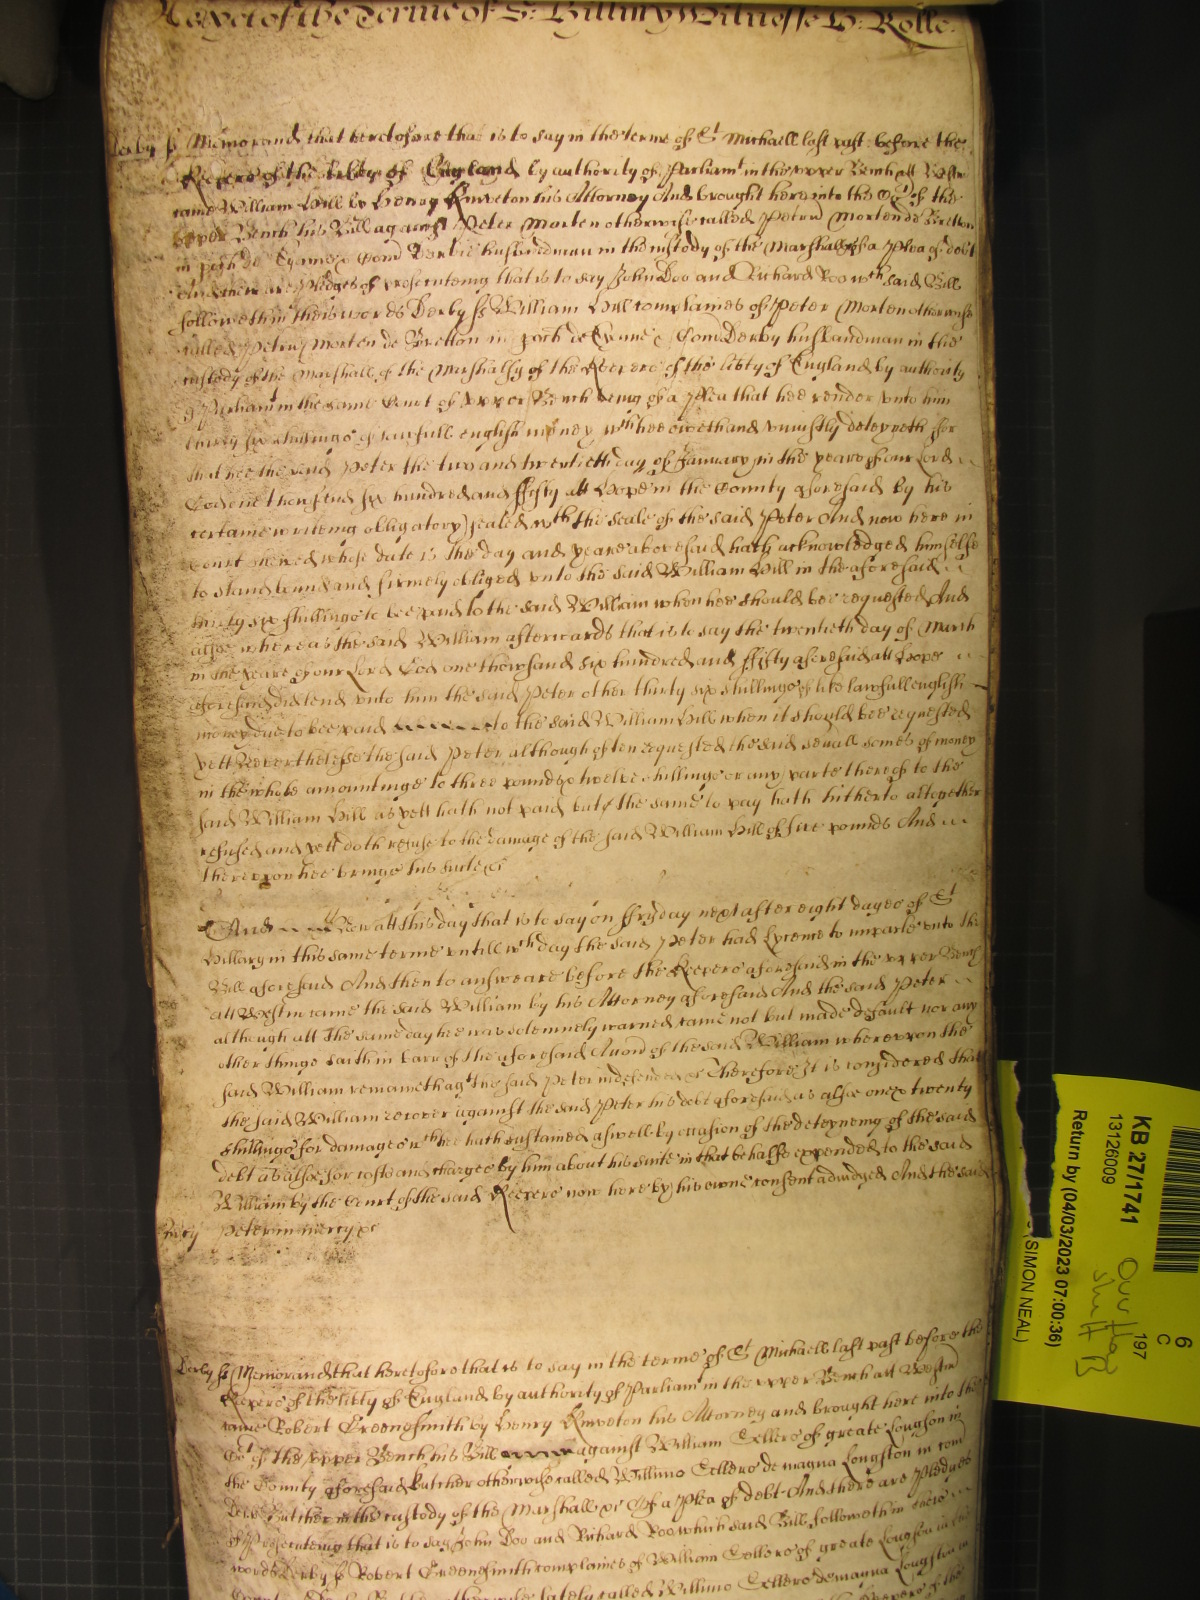 As yet of the Terme of St: Hillary Witnesse H: Rolle.
Derby ss Memorand that heretofore that is to say in the terme of St Michaell last past before the
Keepers of the libty of England by authority of Parliamt in the upper Bench att Westm
came William Hill by Henry Kinveton his Attorney And brought here into the Cot of the
upper Bench his Bill against Peter Morten otherwise called Petrus Morten de Bretton
in poch de Com Derbie husbandman in the custody of the Marshall of a Plea of debt
And there are Pledges of prosecuteing that is to say John Doo and Richard Roo wch said Bill
followeth in theis words Derby ss William Hill complaines of Peter Morten otherwise
called Petrus Morten de Bretton in poch de Com Derby husbandman in the
custody of the Marshall of the Marshalsy of the Keepers of the libty of England by authority
of Parliam in the same Court of upper Bench being of a Plea that hee render unto him
thirty six shillings of lawfull english money wch hee oweth and uniustly deteyneth for
that hee the said Peter the two and twentieth day of January in the yeare of our Lord
God one thousand six hundred and ffifty att Hope in the County aforesaid by his
certaine writeing obligatory sealed wth the seale of the said Peter And now here in
Court shewed whose date is the day and yeare abovesaid hath acknowledged himselfe
to stand bound and firmely obliged unto the said William Hill in the aforesaid
thirty six shillings to bee paid to the said William when hee should bee requested And
alsoe whereas the said William afterwards that is to say the twentieth day of March
in the yeare of our Lord God one thowsand six hundred and ffifty aforesaid att Hope
aforesaid did lend unto him the said Peter other thirty six shillings of like lawfull english
money due to bee paid to the said William Hill when it should bee requested
yett Neverthelesse the said Peter although often requested the said sevall somes of money
in the whole amountinge to three pounds twelve shillings or any parte thereof to the
said William Hill as yett hath not paid but the same to pay hath hitherto altogether
refused and yett doth refuse to the damage of the said William Hill of five pounds And
thereupon hee brings his suite &c
And Now att this day that is to say on ffryday next after eight dayes of St
Hillary in this same terme untill wch day the said Peter had lycence to imparle unto the
Bill aforesaid And then to answeare before the Keepers aforesaid in the upper Bench
att Westm came the said William by his Attorney aforesaid And the said Peter
although att the same day hee was solemnely warned came not but made default nor any
other thinge saith in barr of the aforesaid Accon of the said William whereupon the
said William remaineth agt the said Peter indefended &c Therefore It is considered that
the said William recover against the said Peter his debt aforesaid as alsoe twenty
shillings for damages wch hee hath sustained aswell by occasion of the deteyneing of the said
debt as alsoe for costs and charges by him about his suite in that behalfe expended to the said
William by the Court of the said Keepers now here by his owne consent adiudged And the said
mcy Peter in mercy &c
Derby ss Memorand that heretofore that is to say in the terme of St Michaell last past before the
Keepers of the libty of England by authority of Parliam in the upper Bench att Westm
came Robert Greenesmith by Henry Kinveton his Attorney and brought here into the
Cot of the upper Bench his Bill against William Sellers of greate Longson in
the County aforesaid butcher otherwise called Willimo Sellers de magna Longston in com
Derb Butcher in the custody of the Marshall &c Of a Plea of debt And there are Pledges
of Prosecuteing that is to say John Doo and Richard Roo which said Bill followeth in theis
words Derby ss Robert Greenesmith complaines of William Sellers of greate Longson in the
County lately called Willimo Sellers de magna Longston in
Keepers of the
KB 27/1741
13126009
Return by (04/03/2023 07:00:36)
(SIMON NEAL)
197
6
C